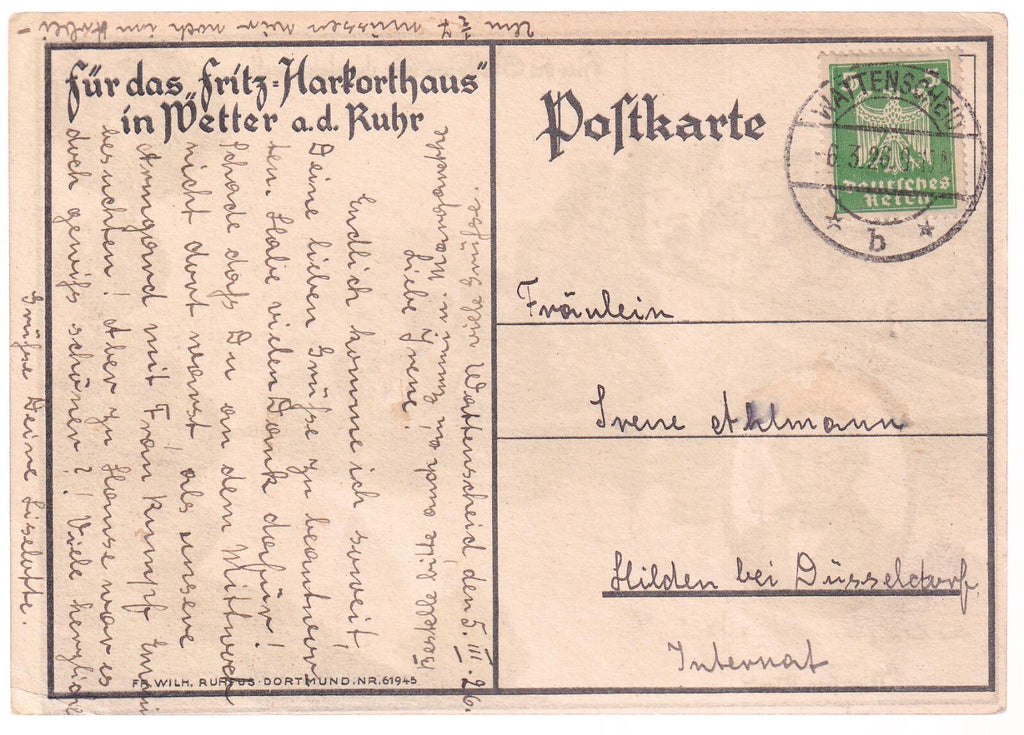 Um ½ 7 müssen wir noch im
Für das "Fritz-Harkorthaus"
in Wetter a.d. Ruhr
Postkarte
WATTENSCHEID
6.3.26.
* b *
5 5
Deutsches
Reich
Fräulein
Irene Ahlmann
Hilden bei Düsseldorf
Internat
Wattenscheid, den 5. III. 26.
Bestelle bitte auch an Emmi u. viele Grüsse.
Liebe Irene!
Endlich komme ich soweit,
Deine lieben Grüße zu beantwor
ten. Habe vielen Dank dafür!
Schade dafs Du an dem Mittwoch
nicht dort warst, als unsere
Armgard mit Frau Kumpf Emmi
besuchten! Aber zu Hause war es
doch gewifs schöner?! Viele herzliche
Grüfse Deine Liselotte.
FR. WILH. RUHFUS · DORTMUND. NR. 61945